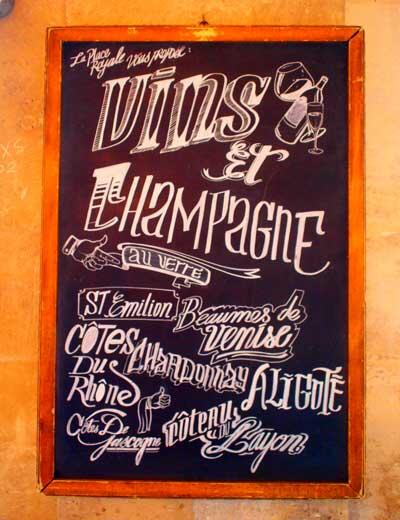 La Place
Royale Vous propose :
Vins
et
Champagne
au verre
St Émilion
Beaumes de
Venise
Côtes
Du
Rhône
Chardonnay
Aligoté
Côtes De
Gascogne
Côteau
du
Layon